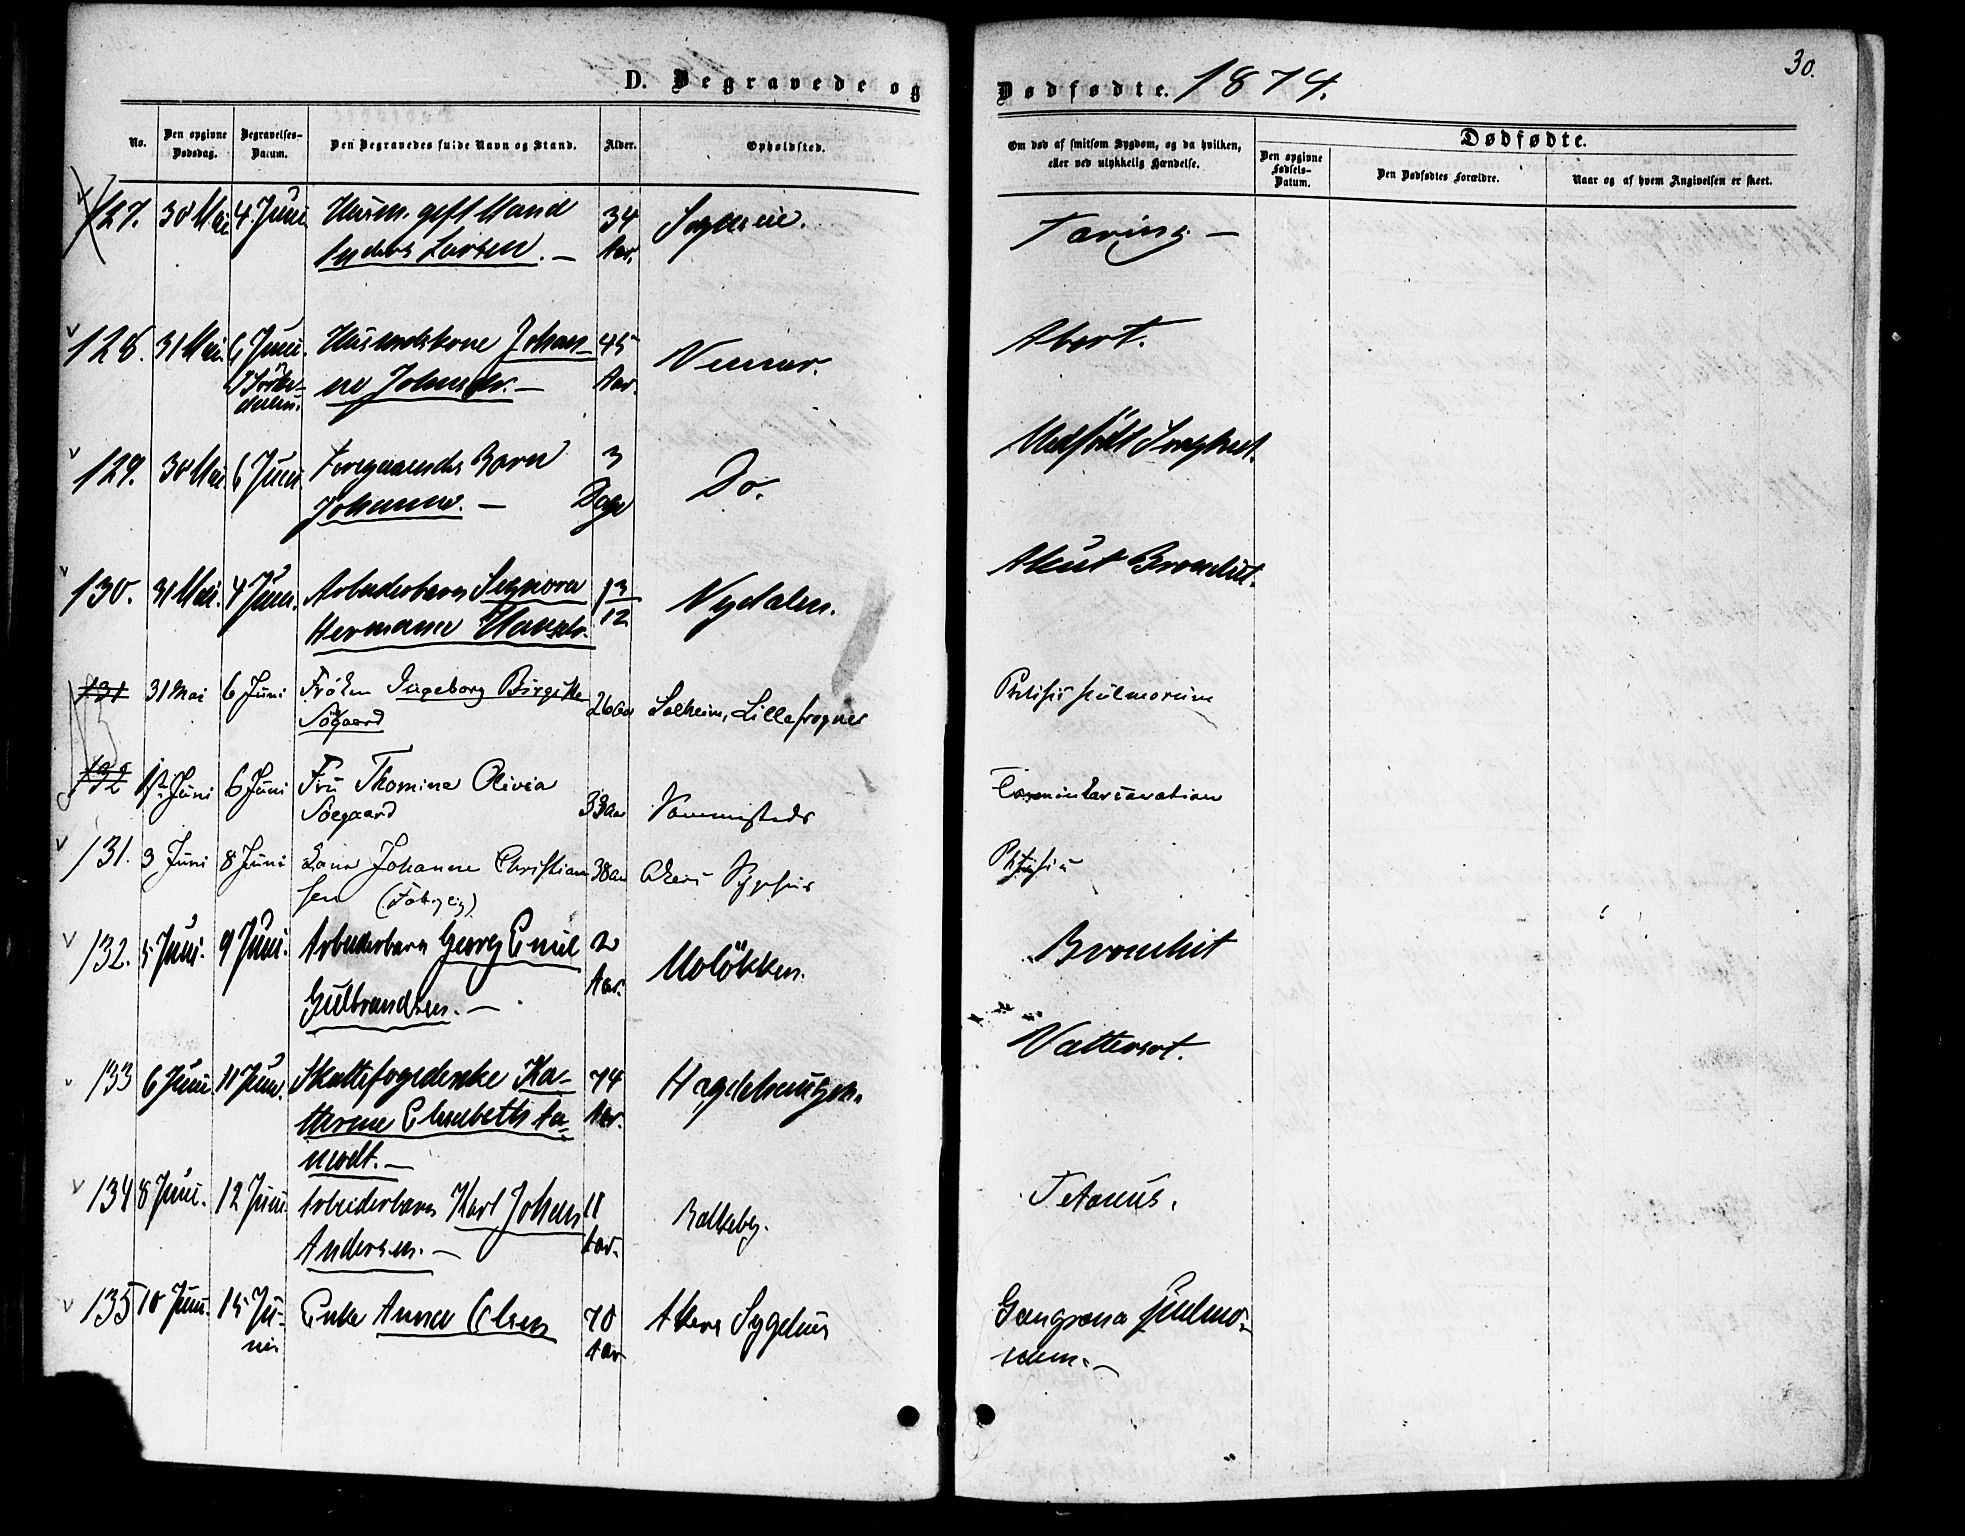 D. Begravede og Dødfødte. 1874.
30.
No.
Den opgivne Dødsdag.
Begravelses-Datum.
Den Begravedes fulde Navn og Stand.
Alder.
Opholdsted.
Om død af smitsom Sygdom, og da hvilken, eller ved ulykkelig Hændelse.
Dødfødte.
Den opgivne Fødsels-Datum.
Den Dødfødtes Forældre.
Naar og af hvem Angivelsen er skeet.
127. 30 Mai 4. Juni gift Mand 34 Tæring —
Anders Larsen. — Aar.
128. 31 Mai. 6 Juni. Johan- 45 Abort.
ne — Aar.
129. 30 Mai 6 Juni. Foregaaendes Barn 3 Do. Medfödt
Johanne. — Dage
130. 31 Mai. 4 Juni. Arbeiderbarn 1 3/12 Nydalen. Akut Bronchit.
Hermane
131 31 Mai 6 Juni Fröken Ingeborg Birgitte 26 Aar Solheim, Lillefrogner Phthisis pulmorum
Søgaard
132 1ste Juni 6 Juni Fru Thomine Olivia 33 Aar
Søegaard
131. 3 Juni 8 Juni Johanne Christian 38 Aar Akers Sygehus Phthisis
sen
132. 5 Juni. 9 Juni. Arbeiderbarn Georg Emil 2 Bronchit
Gulbrandsen. — Aar.
133 6 Juni 11 Juni. Ka- 74 Hægdehaugen. Vattersot.
therine Elisabeth Aa- Aar.
modt. —
134 8 Juni. 12 Juni Arbeiderbarn Karl Johan 11 Bakkeby. Tetanus.
Andersen. — Aar.
135 10 Juni. 15 Ju- Enke Anna Olsen 70 Akers Sygehus Gangræna pulmo-
ni. Aar num. —